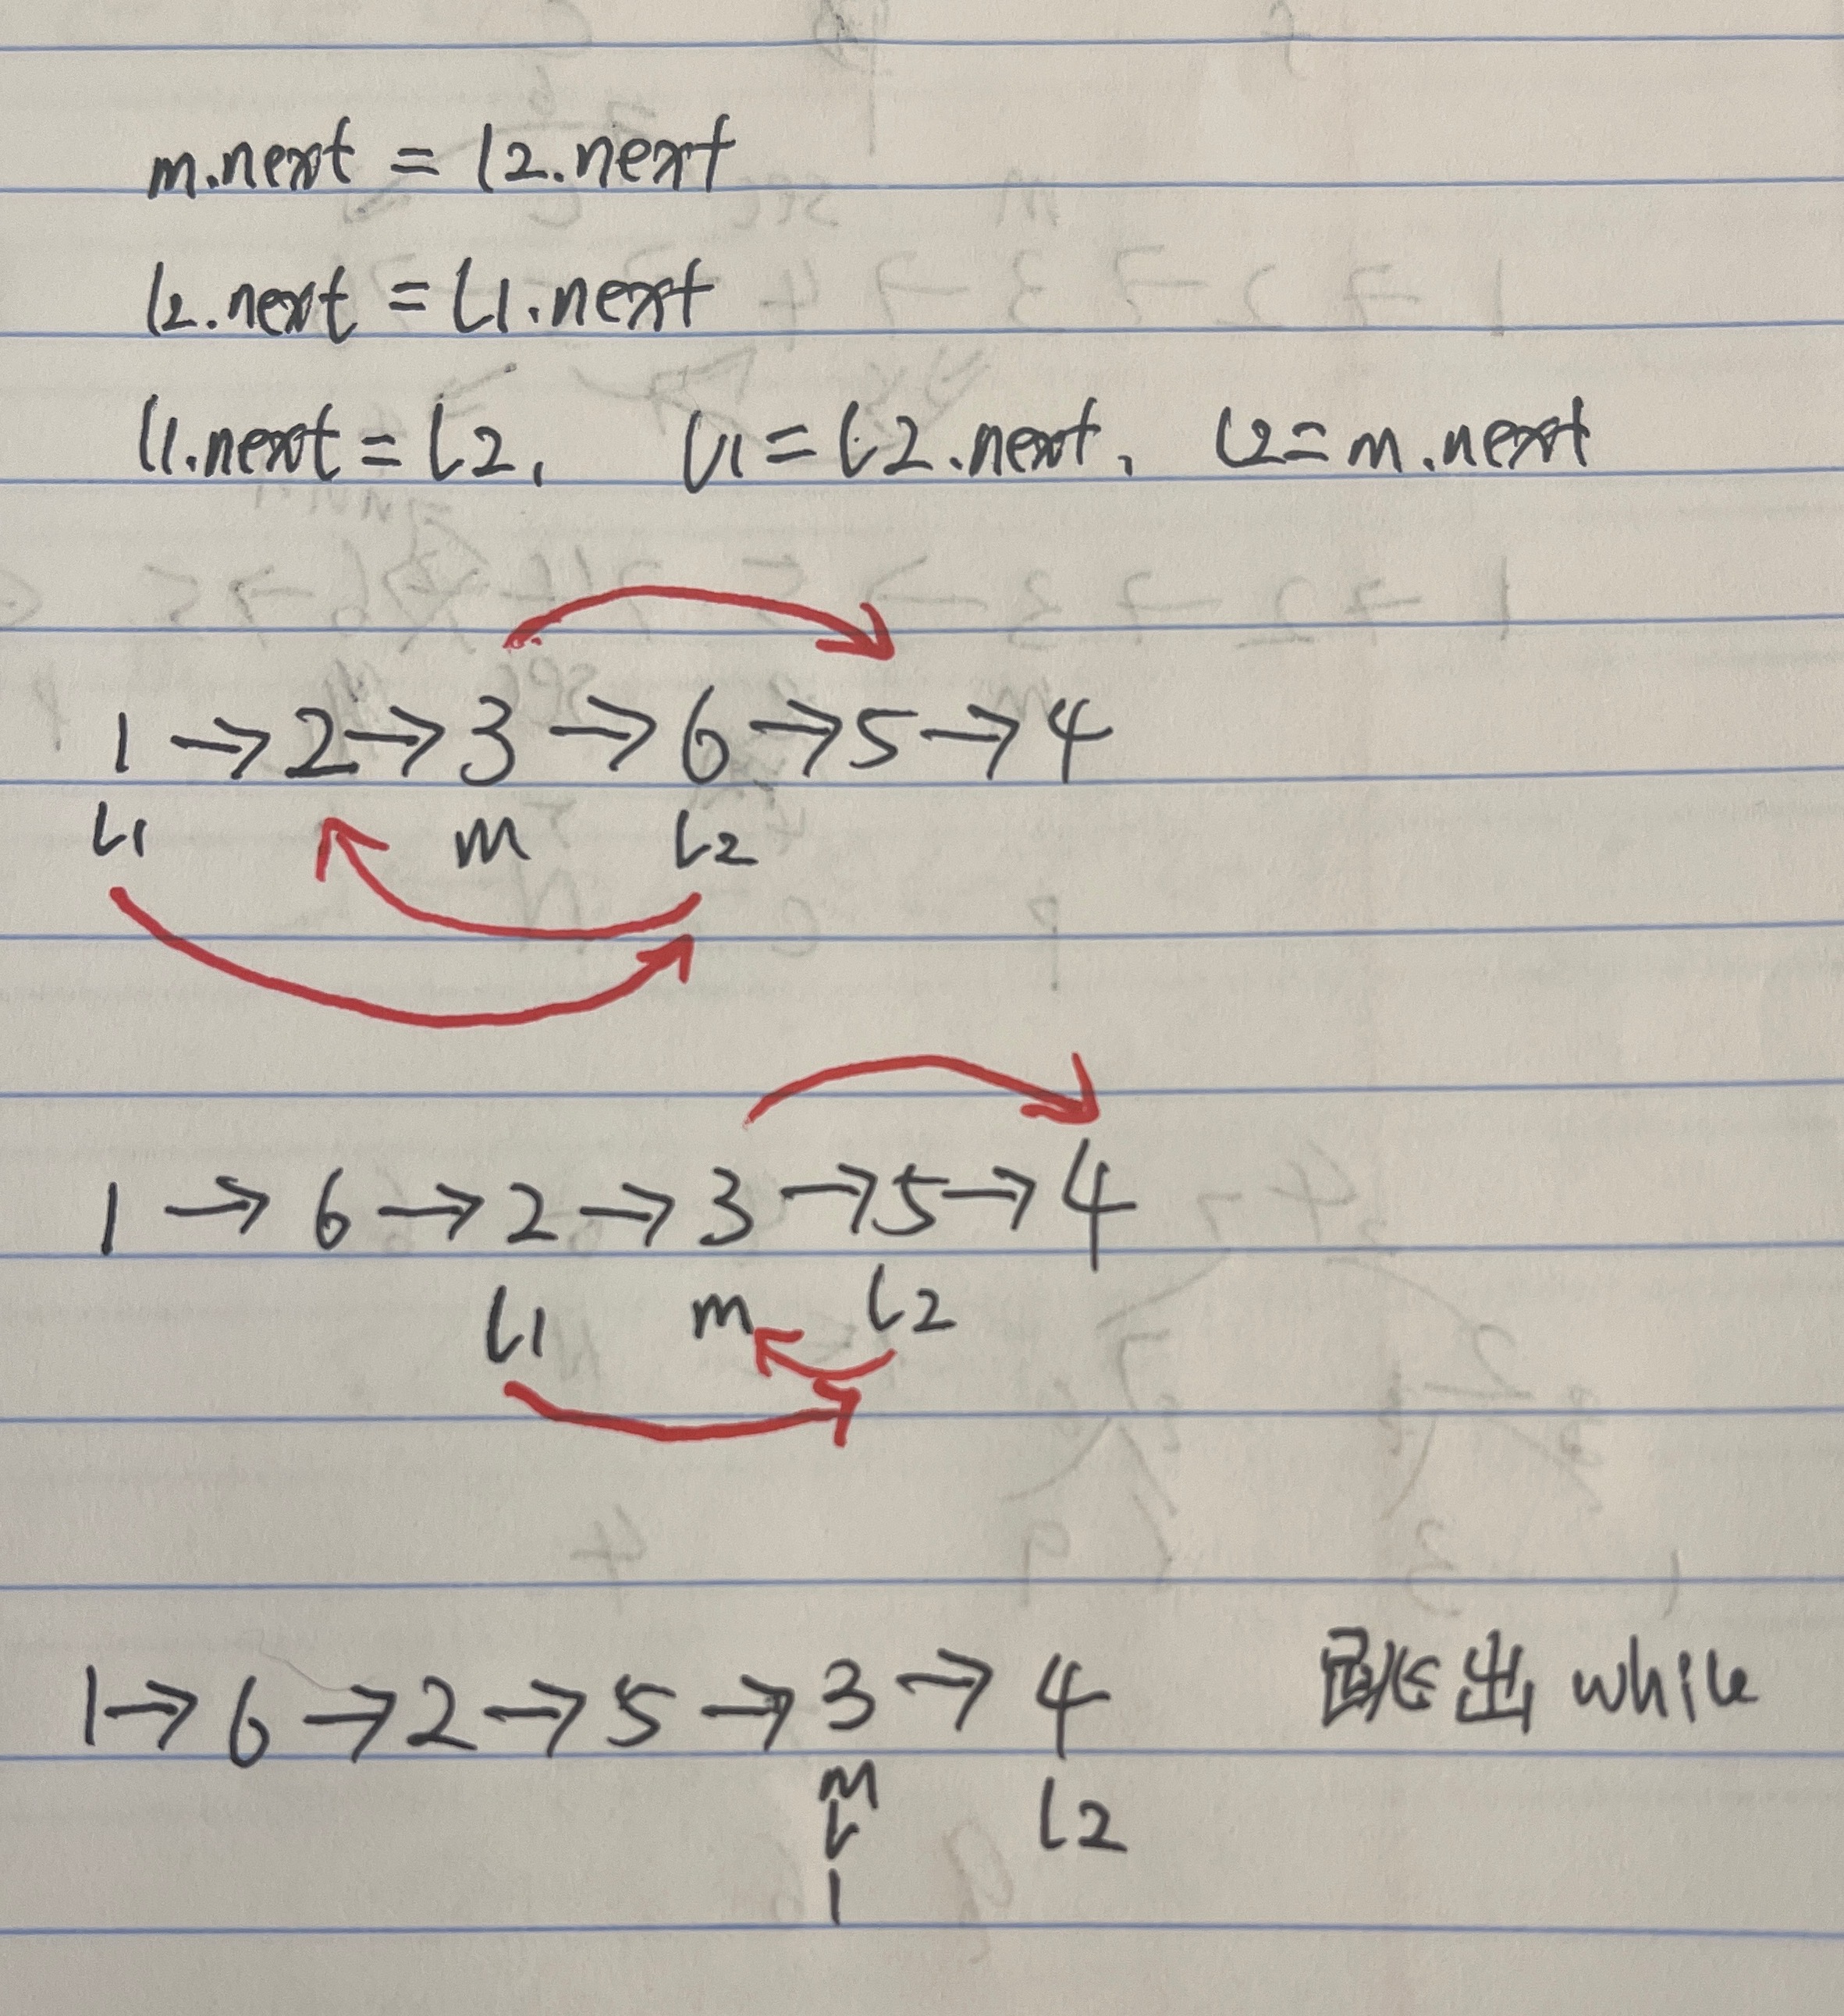 m.next = l2.next
l2.next = l1.next
l1.next = l2, l1 = l2.next, l2 = m.next
1 → 2 → 3 → 6 → 5 → 4
l1 m l2
1 → 6 → 2 → 3 → 5 → 4
l1 m l2
1 → 6 → 2 → 5 → 3 → 4 跳出 while
m
l l2
1